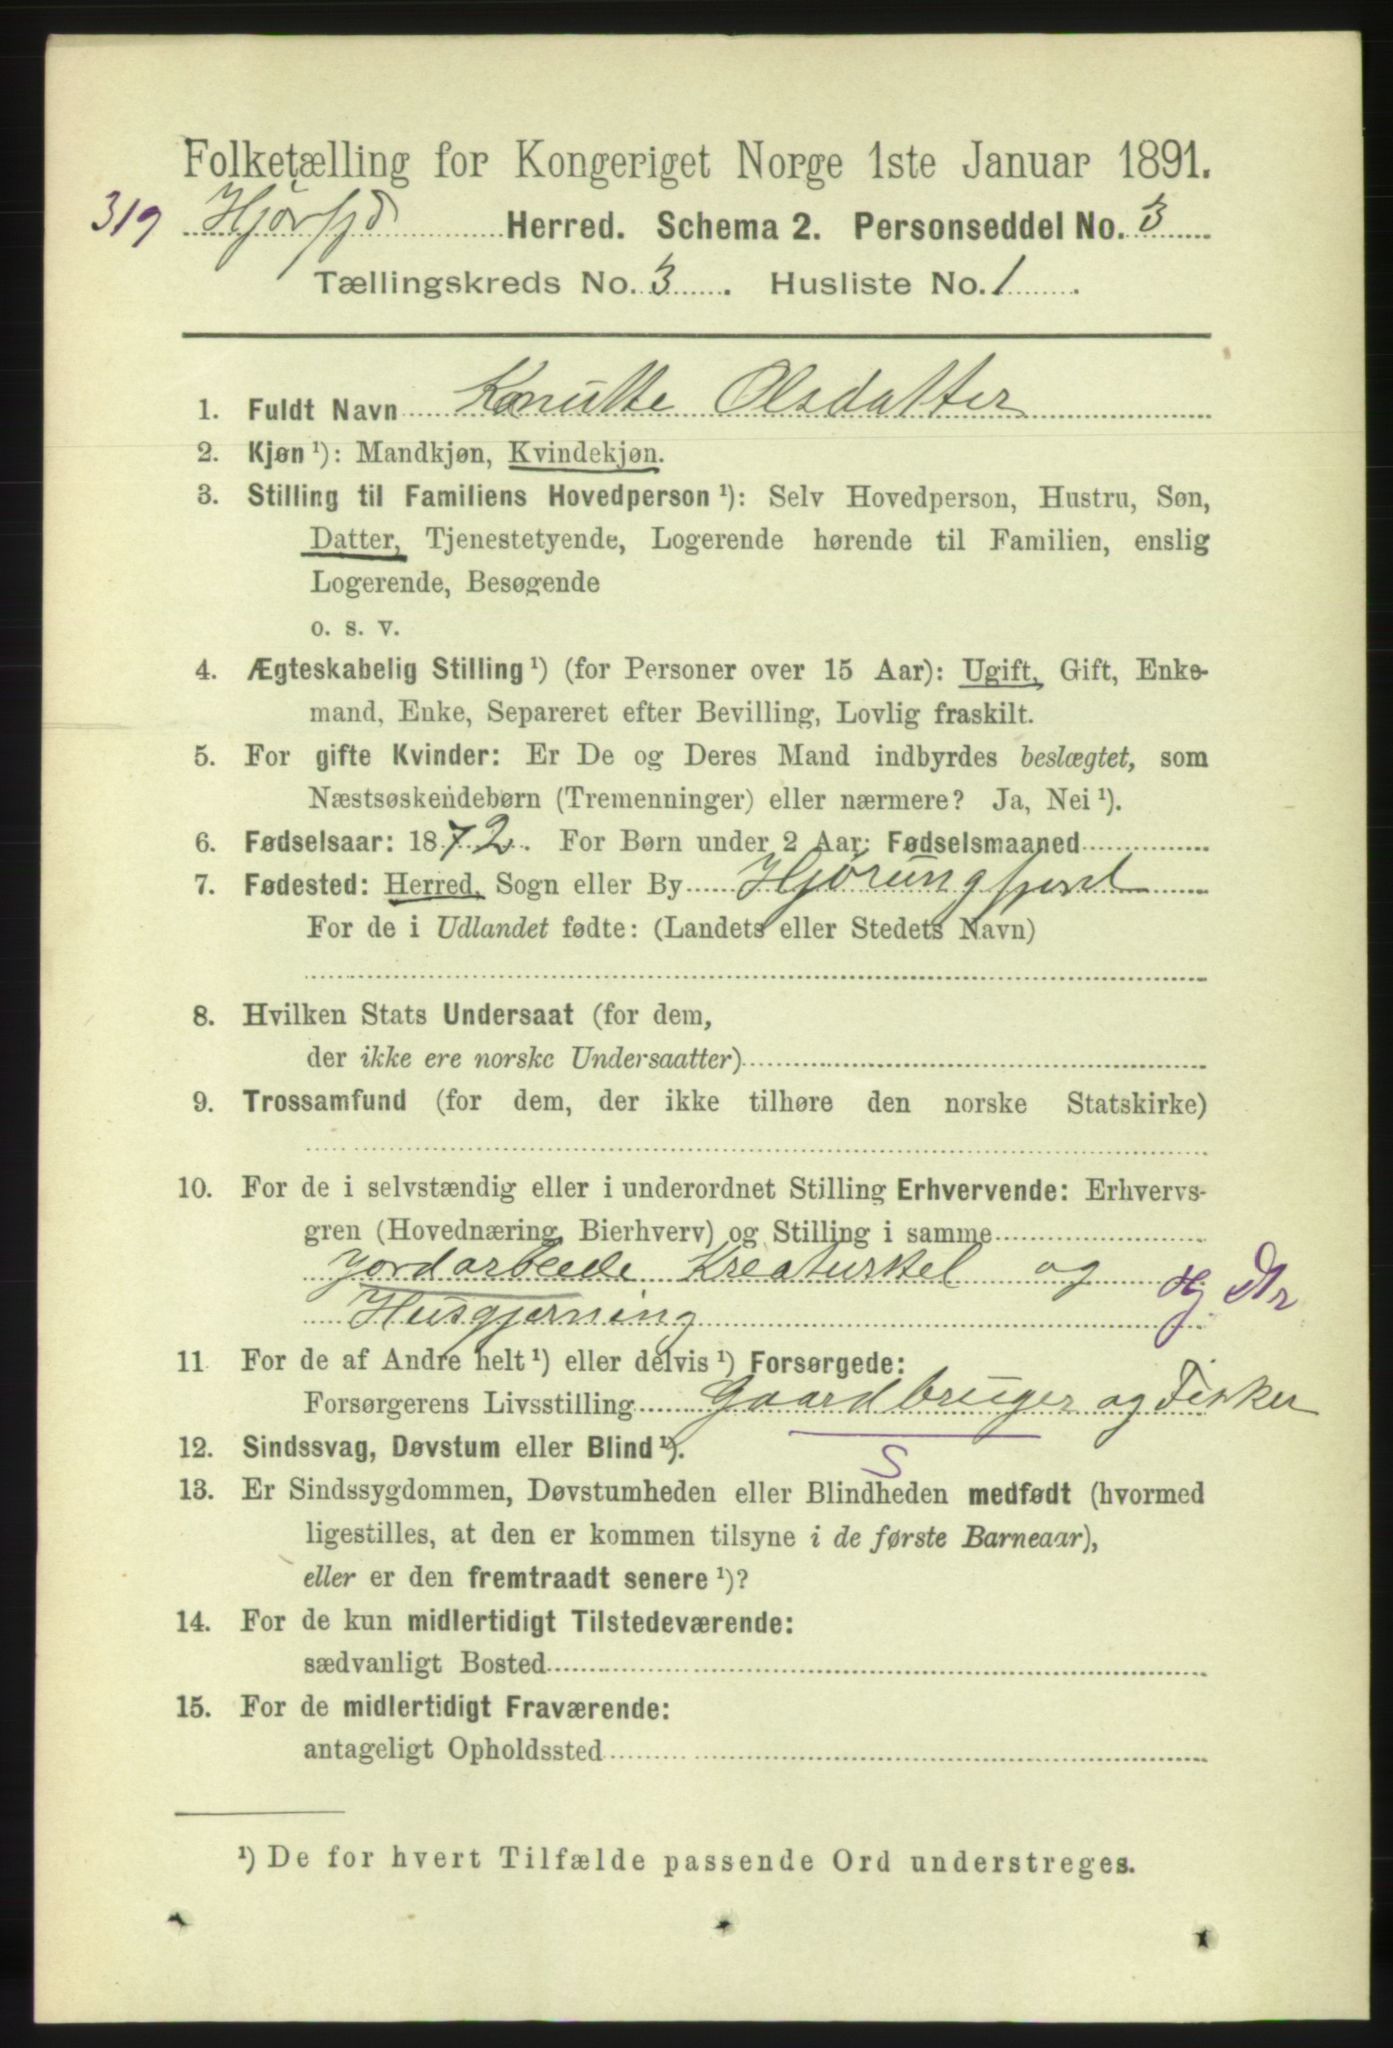 Folketælling for Kongeriget Norge 1ste Januar 1891.
319 Hjørfjd Herred. Schema 2. Personseddel No. 3
Tællingskreds No. 3. Husliste No. 1.
1. Fuldt Navn Knutte Olsdatter
2. Kjøn ¹): Mandkjøn, Kvindekjøn.
3. Stilling til Familiens Hovedperson ¹): Selv Hovedperson, Hustru, Søn,
Datter, Tjenestetyende, Logerende hørende til Familien, enslig
Logerende, Besøgende
o. s. v.
4. Ægteskabelig Stilling ¹) (for Personer over 15 Aar): Ugift, Gift, Enke-
mand, Enke, Separeret efter Bevilling, Lovlig fraskilt.
5. For gifte Kvinder: Er De og Deres Mand indbyrdes beslægtet, som
Næstsøskendebørn (Tremenninger) eller nærmere? Ja, Nei ¹).
6. Fødselsaar: 1872. For Børn under 2 Aar: Fødselsmaaned
7. Fødested: Herred, Sogn eller By Hjørungfjord
For de i Udlandet fødte: (Landets eller Stedets Navn)
8. Hvilken Stats Undersaat (for dem,
der ikke ere norske Undersaatter)
9. Trossamfund (for dem, der ikke tilhøre den norske Statskirke)
10. For de i selvstændig eller i underordnet Stilling Erhvervende: Erhvervs-
gren (Hovednæring, Bierhverv) og Stilling i samme
Jordarbeide Kreaturstel og
Husgjerning
11 For de af Andre helt ¹) eller delvis ¹) Forsørgede:
Forsørgerens Livsstilling Gaardbruger og Fisker
12. Sindssvag, Døvstum eller Blind ¹).
S
13. Er Sindssygdommen, Døvstumheden eller Blindheden medfødt (hvormed
ligestilles, at den er kommen tilsyne i de første Barneaar),
eller er den fremtraadt senere ¹)?
14. For de kun midlertidigt Tilstedeværende:
sædvanligt Bosted
15. For de midlertidigt Fraværende:
antageligt Opholdssted
¹) De for hvert Tilfælde passende Ord understreges.